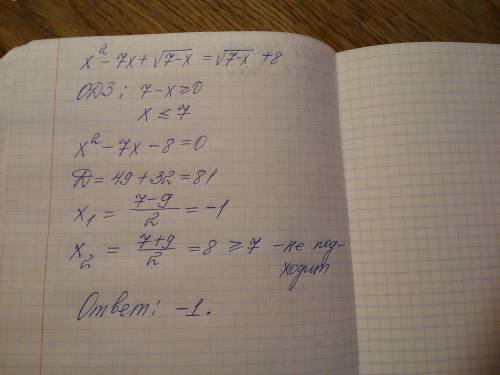 x² - 7x + √(7-x) = √(7-x) + 8
ОДЗ: 7-x ≥ 0
x ≤ 7
x² - 7x - 8 = 0
D = 49 + 32 = 81
x₁ = (7-9)/2 = -1
x₂ = (7+9)/2 = 8 ≥ 7 - не под-
ходит
Ответ: -1.